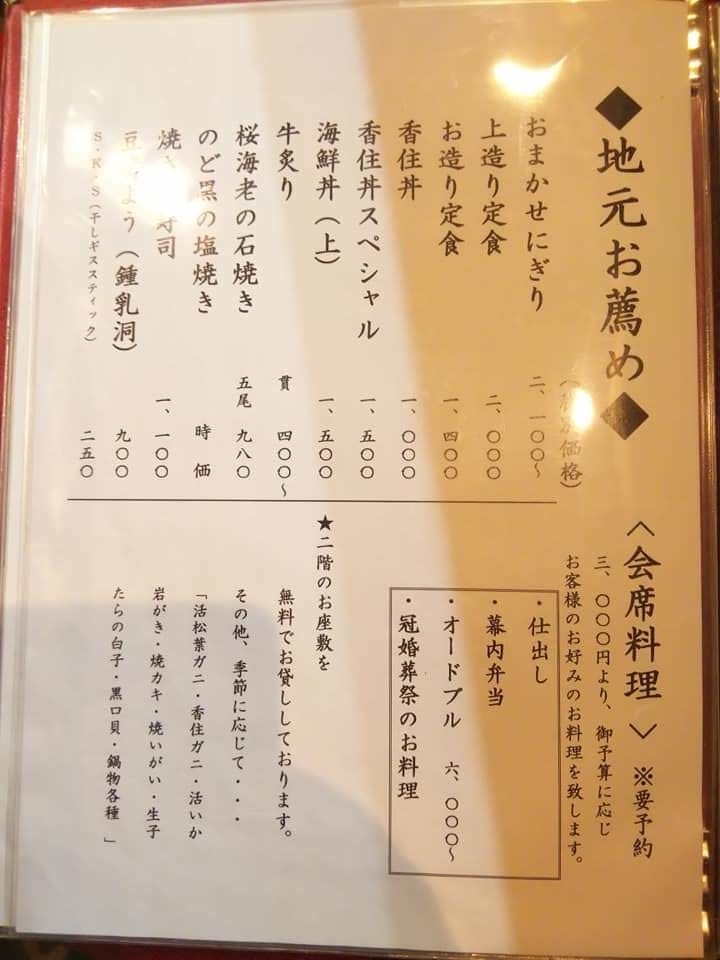 ◆地元お薦め◆
価格）
おまかせにぎり 二、一〇〇～
上造り定食 二、〇〇〇
お造り定食 一、四〇〇
香住丼 一、〇〇〇
香住丼スペシャル 一、五〇〇
海鮮丼（上） 一、五〇〇
牛炙り 貫 四〇〇～
桜海老の石焼き 五尾 九八〇
のど黒の塩焼き 時価
焼き 寿司 一、一〇〇
豆 よう（鍾乳洞） 九〇〇
S・K・S（干しギススティック） 二五〇
〈会席料理〉 ※要予約
三、〇〇〇円より、御予算に応じ
お客様のお好みのお料理を致します。
・仕出し
・幕内弁当
・オードブル 六、〇〇〇～
・冠婚葬祭のお料理
★二階のお座敷を
無料でお貸ししております。
その他、季節に応じて・・・
「活松葉ガニ・香住ガニ・活いか
岩がき・焼カキ・焼いがい・生子
たらの白子・黒口貝・鍋物各種 」